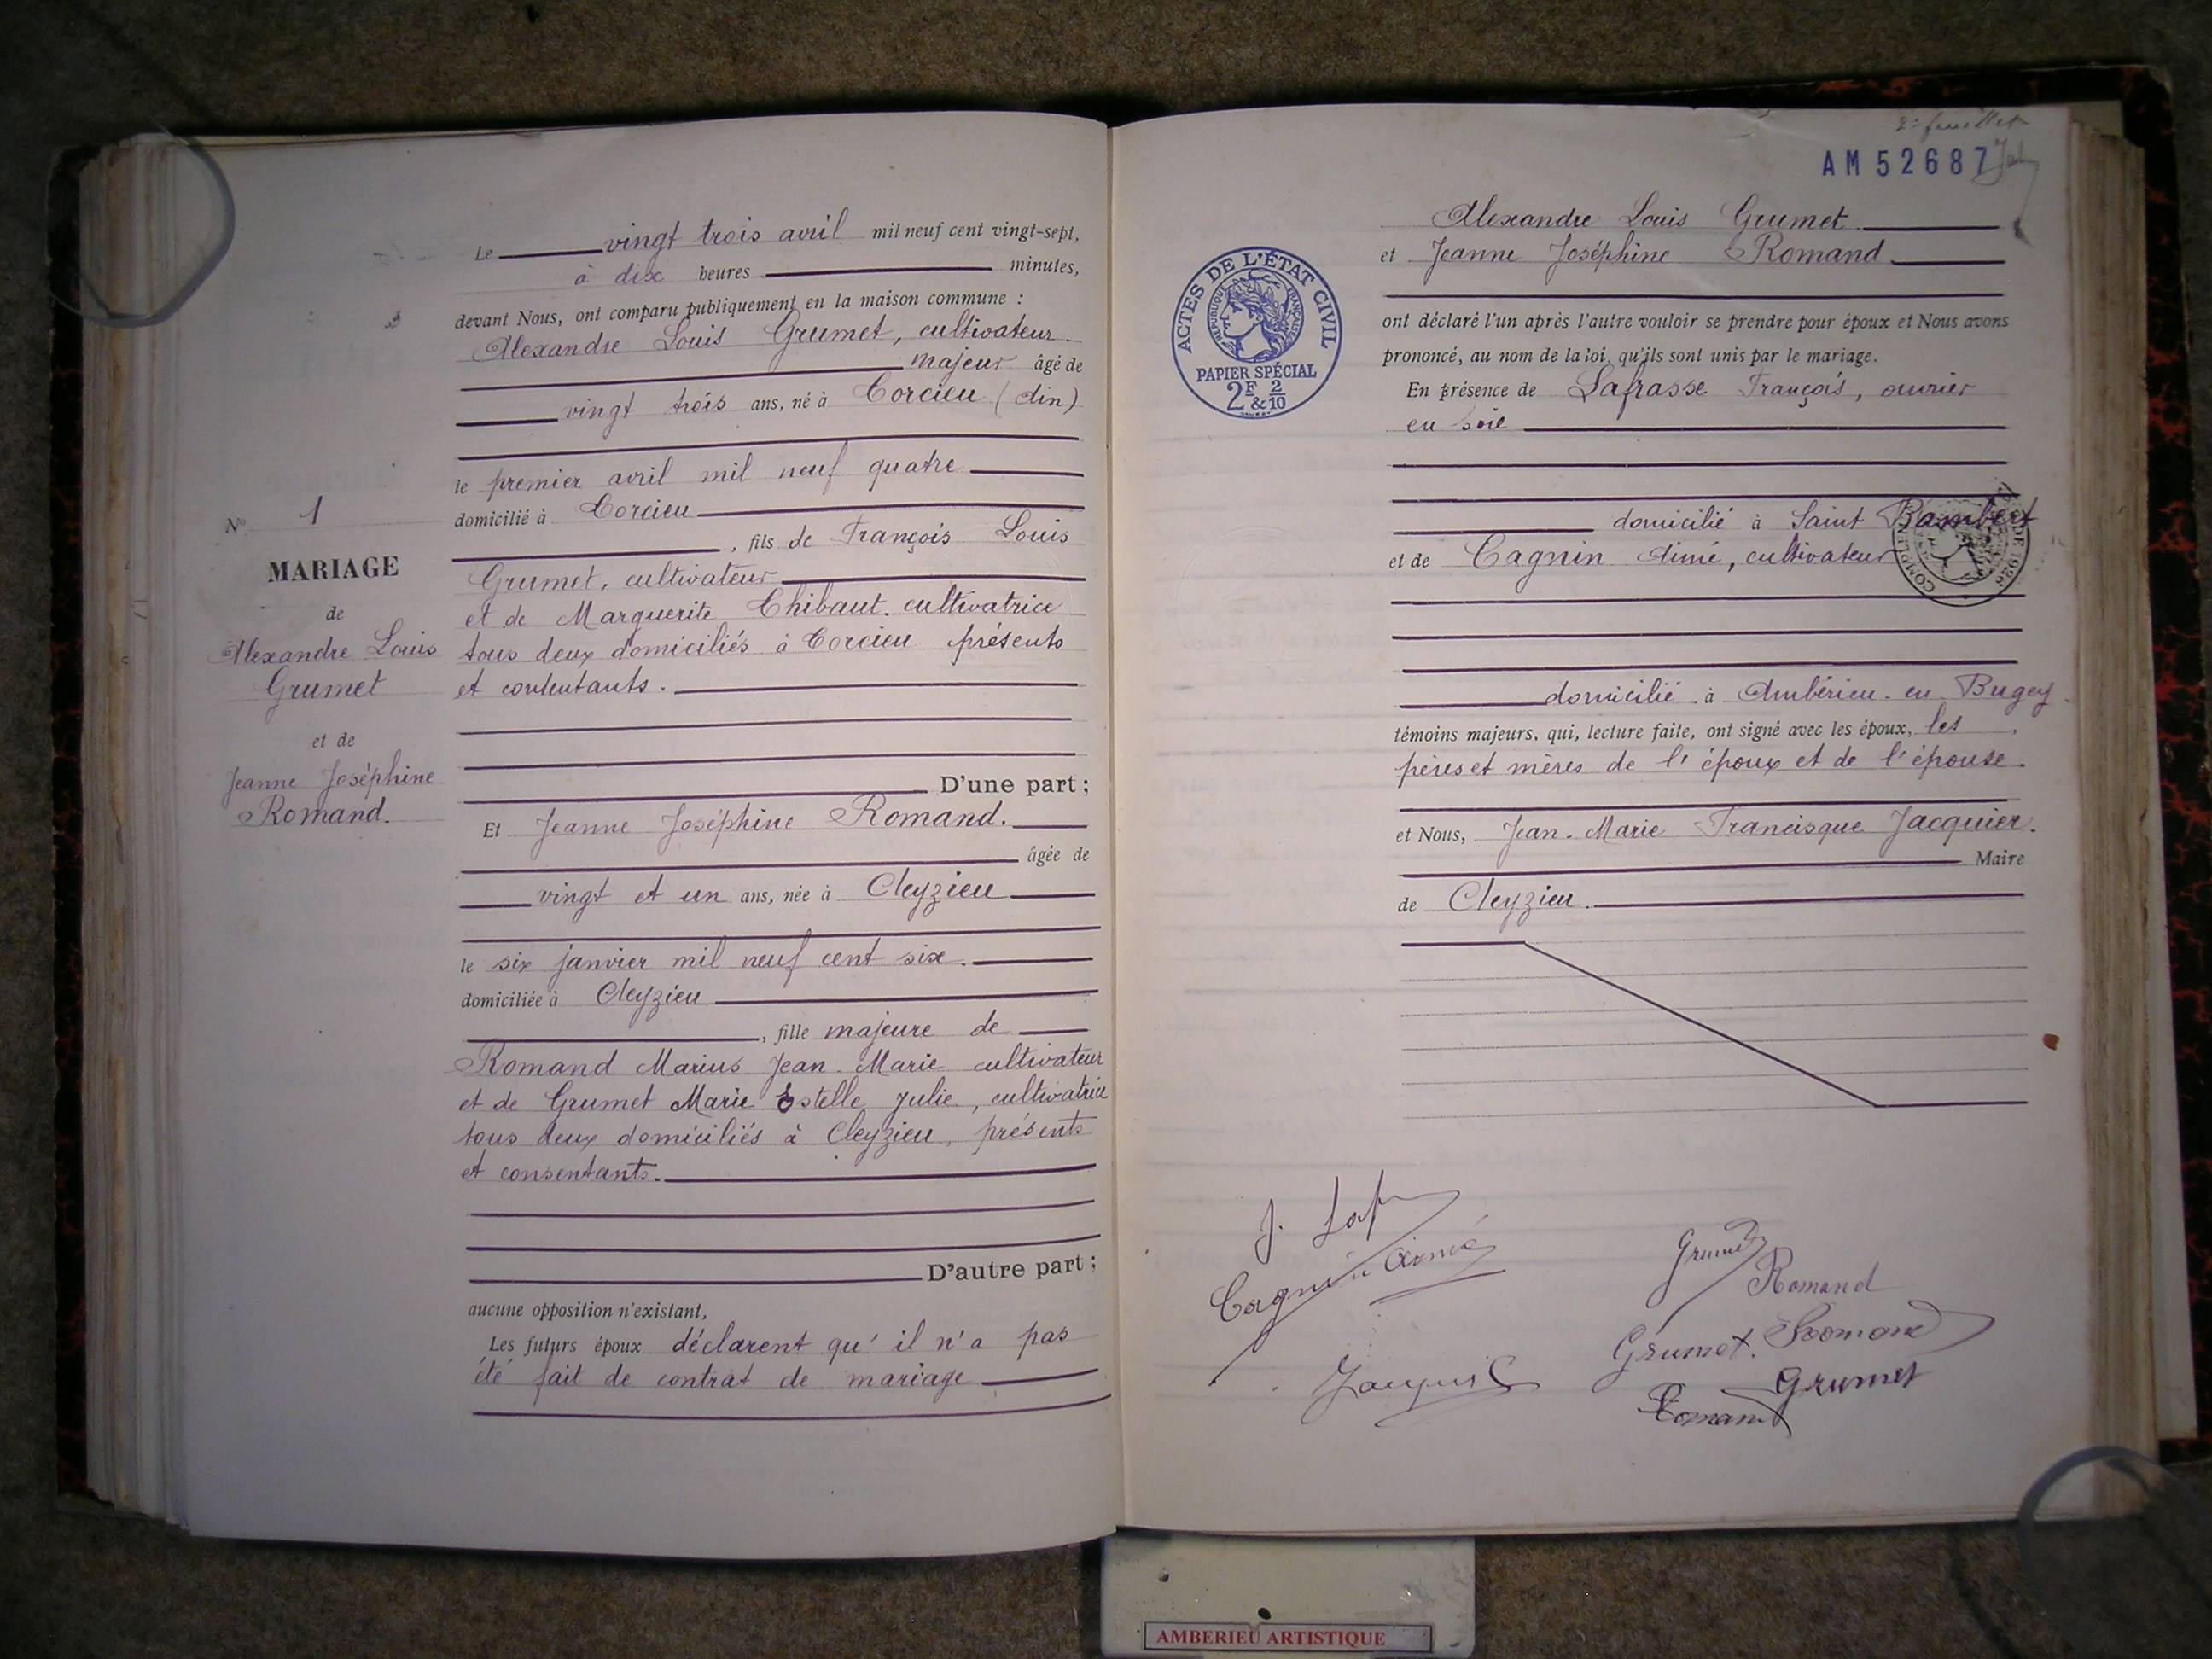 Le vingt trois avril mil neuf cent vingt-sept,
à dix heures minutes,
devant Nous, ont comparu publiquement en la maison commune :
Alexandre Louis Grumet, cultivateur
majeur âgé de
vingt trois ans, né à Torcieu (Ain)
le premier avril mil neuf quatre
domicilié à Torcieu
, fils de François Louis
Grumet, cultivateur
et de Marguerite Thibaut. cultivatrice
tous deux domiciliés à Torcieu présents
et contentants.
D'une part ;
Et Jeanne Joséphine Romand.
âgée de
vingt et un ans, née à Cleyzieu
le six janvier mil neuf cent six.
domiciliée à Cleyzieu
, fille majeure de
Romand Marius Jean-Marie cultivateur
et de Grumet Marie Estelle Julie, cultivatrice
tous deux domiciliés à Cleyzieu, présents
et consentants.
D'autre part ;
aucune opposition n'existant,
Les futurs époux déclarent qu'il n'a pas
été fait de contrat de mariage
No 1
MARIAGE
de
Alexandre Louis
Grumet
et de
Jeanne Joséphine
Romand.
2e feuillet
AM 52687
ACTES DE L'ÉTAT CIVIL
RÉPUBLIQUE FRANÇAISE
PAPIER SPÉCIAL
2F & 2/10
Alexandre Louis Grumet
et Jeanne Joséphine Romand
ont déclaré l'un après l'autre vouloir se prendre pour époux et Nous avons
prononcé, au nom de la loi, qu'ils sont unis par le mariage.
En présence de Lafrasse François, ouvrier
en soie
domicilié à Saint Rambert
et de Cagnin Aimé, cultivateur
domicilié à Ambérieu-en-Bugey
témoins majeurs, qui, lecture faite, ont signé avec les époux, les
pères et mères de l'époux et de l'épouse.
et Nous, Jean-Marie Francisque Jacquier.
Maire
de Cleyzieu.
Cagnin Aimé
Grumet
Romand
Grumet. Romand
Grumet
Romand
AMBERIEU ARTISTIQUE